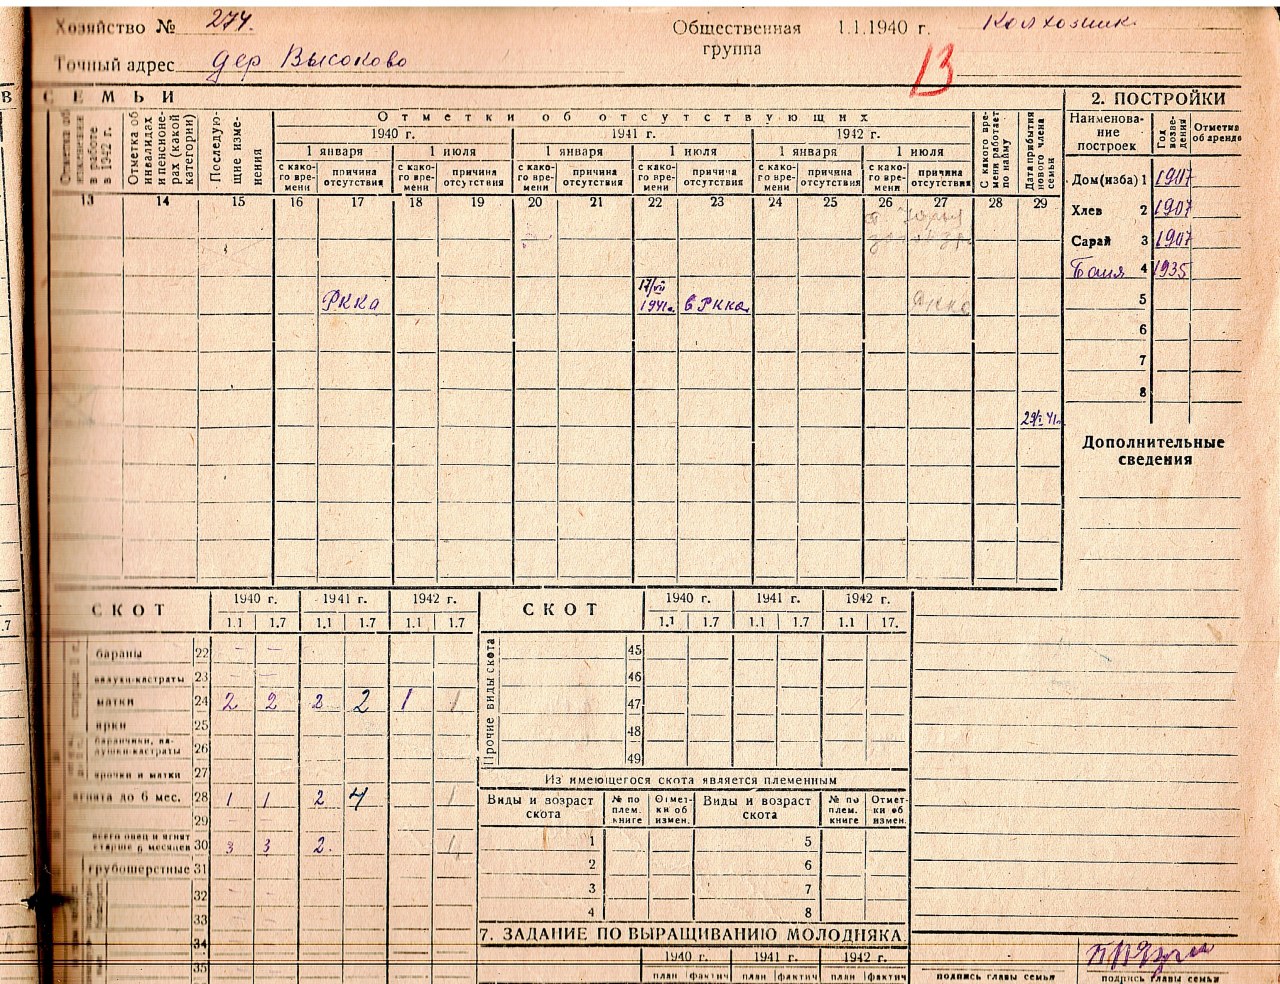 Хозяйство № 274.
Общественная группа 1.1.1940 г. Колхозник
Точный адрес дер Высоково
13
В СЕМЬИ
2. ПОСТРОЙКИ
Отметка об инвалидах и пенсионерах (какой категории)
Последующие изменения
Отметки об отсутствующих
1940 г. 1941 г. 1942 г.
1 января 1 июля 1 января 1 июля 1 января 1 июля
с како-го вре-мени причина отсутствия с како-го вре-мени причина отсутствия с како-го вре-мени причина отсутствия с како-го вре-мени причина отсутствия с како-го вре-мени причина отсутствия с како-го вре-мени причина отсутствия
С какого вре-мени работает по найму
Дата прибытия нового члена семьи
Наименова-ние построек Год возве-дения Отметка об аренде
13 14 15 16 17 18 19 20 21 22 23 24 25 26 27 28 29
Дом (изба) 1 1907
Хлев 2 1907
Сарай 3 1907
Баня 4 1935
РККА
17/VII 1941г. в РККА
5
6
7
8
29/I 41г.
Дополнительные сведения
СКОТ 1940 г. 1941 г. 1942 г.
1.1 1.7 1.1 1.7 1.1 1.7
бараны 22 - -
валухи-кастраты 23
матки 24 2 2 3 2 1 1
ярки 25
баранчики, ва-лушки-кастраты 26
ярочки и матки 27
ягнята до 6 мес. 28 1 1 2 4 1
29
всего овец и ягнят старше 6 месяцев 30 3 3 2. 1
грубошерстные 31
32
33
34
35
СКОТ 1940 г. 1941 г. 1942 г.
1.1 1.7 1.1 1.7 1.1 17.
Прочие виды скота
45
46
47
48
49
Из имеющегося скота является племенным
Виды и возраст скота № по плем. книге Отмет-ки об измен. Виды и возраст скота № по плем. книге Отмет-ки об измен.
1 5
2 6
3 7
4 8
7. ЗАДАНИЕ ПО ВЫРАЩИВАНИЮ МОЛОДНЯКА
1940 г. 1941 г. 1942 г.
план фактич план фактич план фактич
подпись главы семьи подпись главы семьи